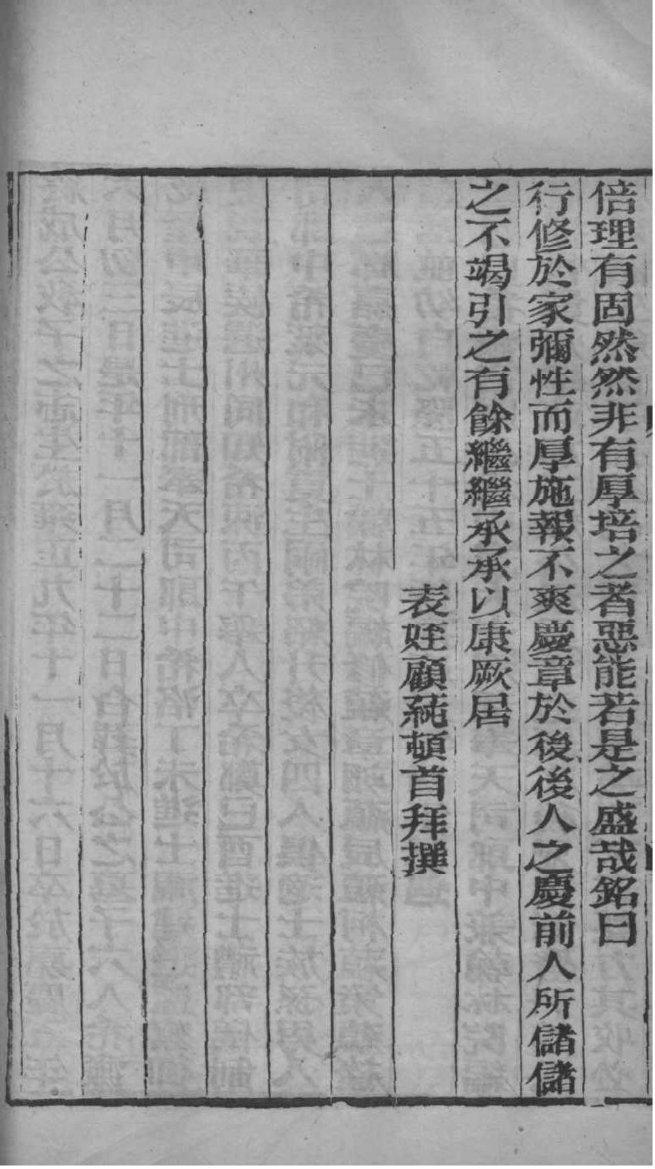 倍理有固然然非有厚培之者惡能若是之盛哉銘曰
行修於家彌性而厚施報不爽慶章於後後人之慶前人所儲儲
之不竭引之有餘繼繼承承以康厥居
表姪顧蒓頓首拜撰